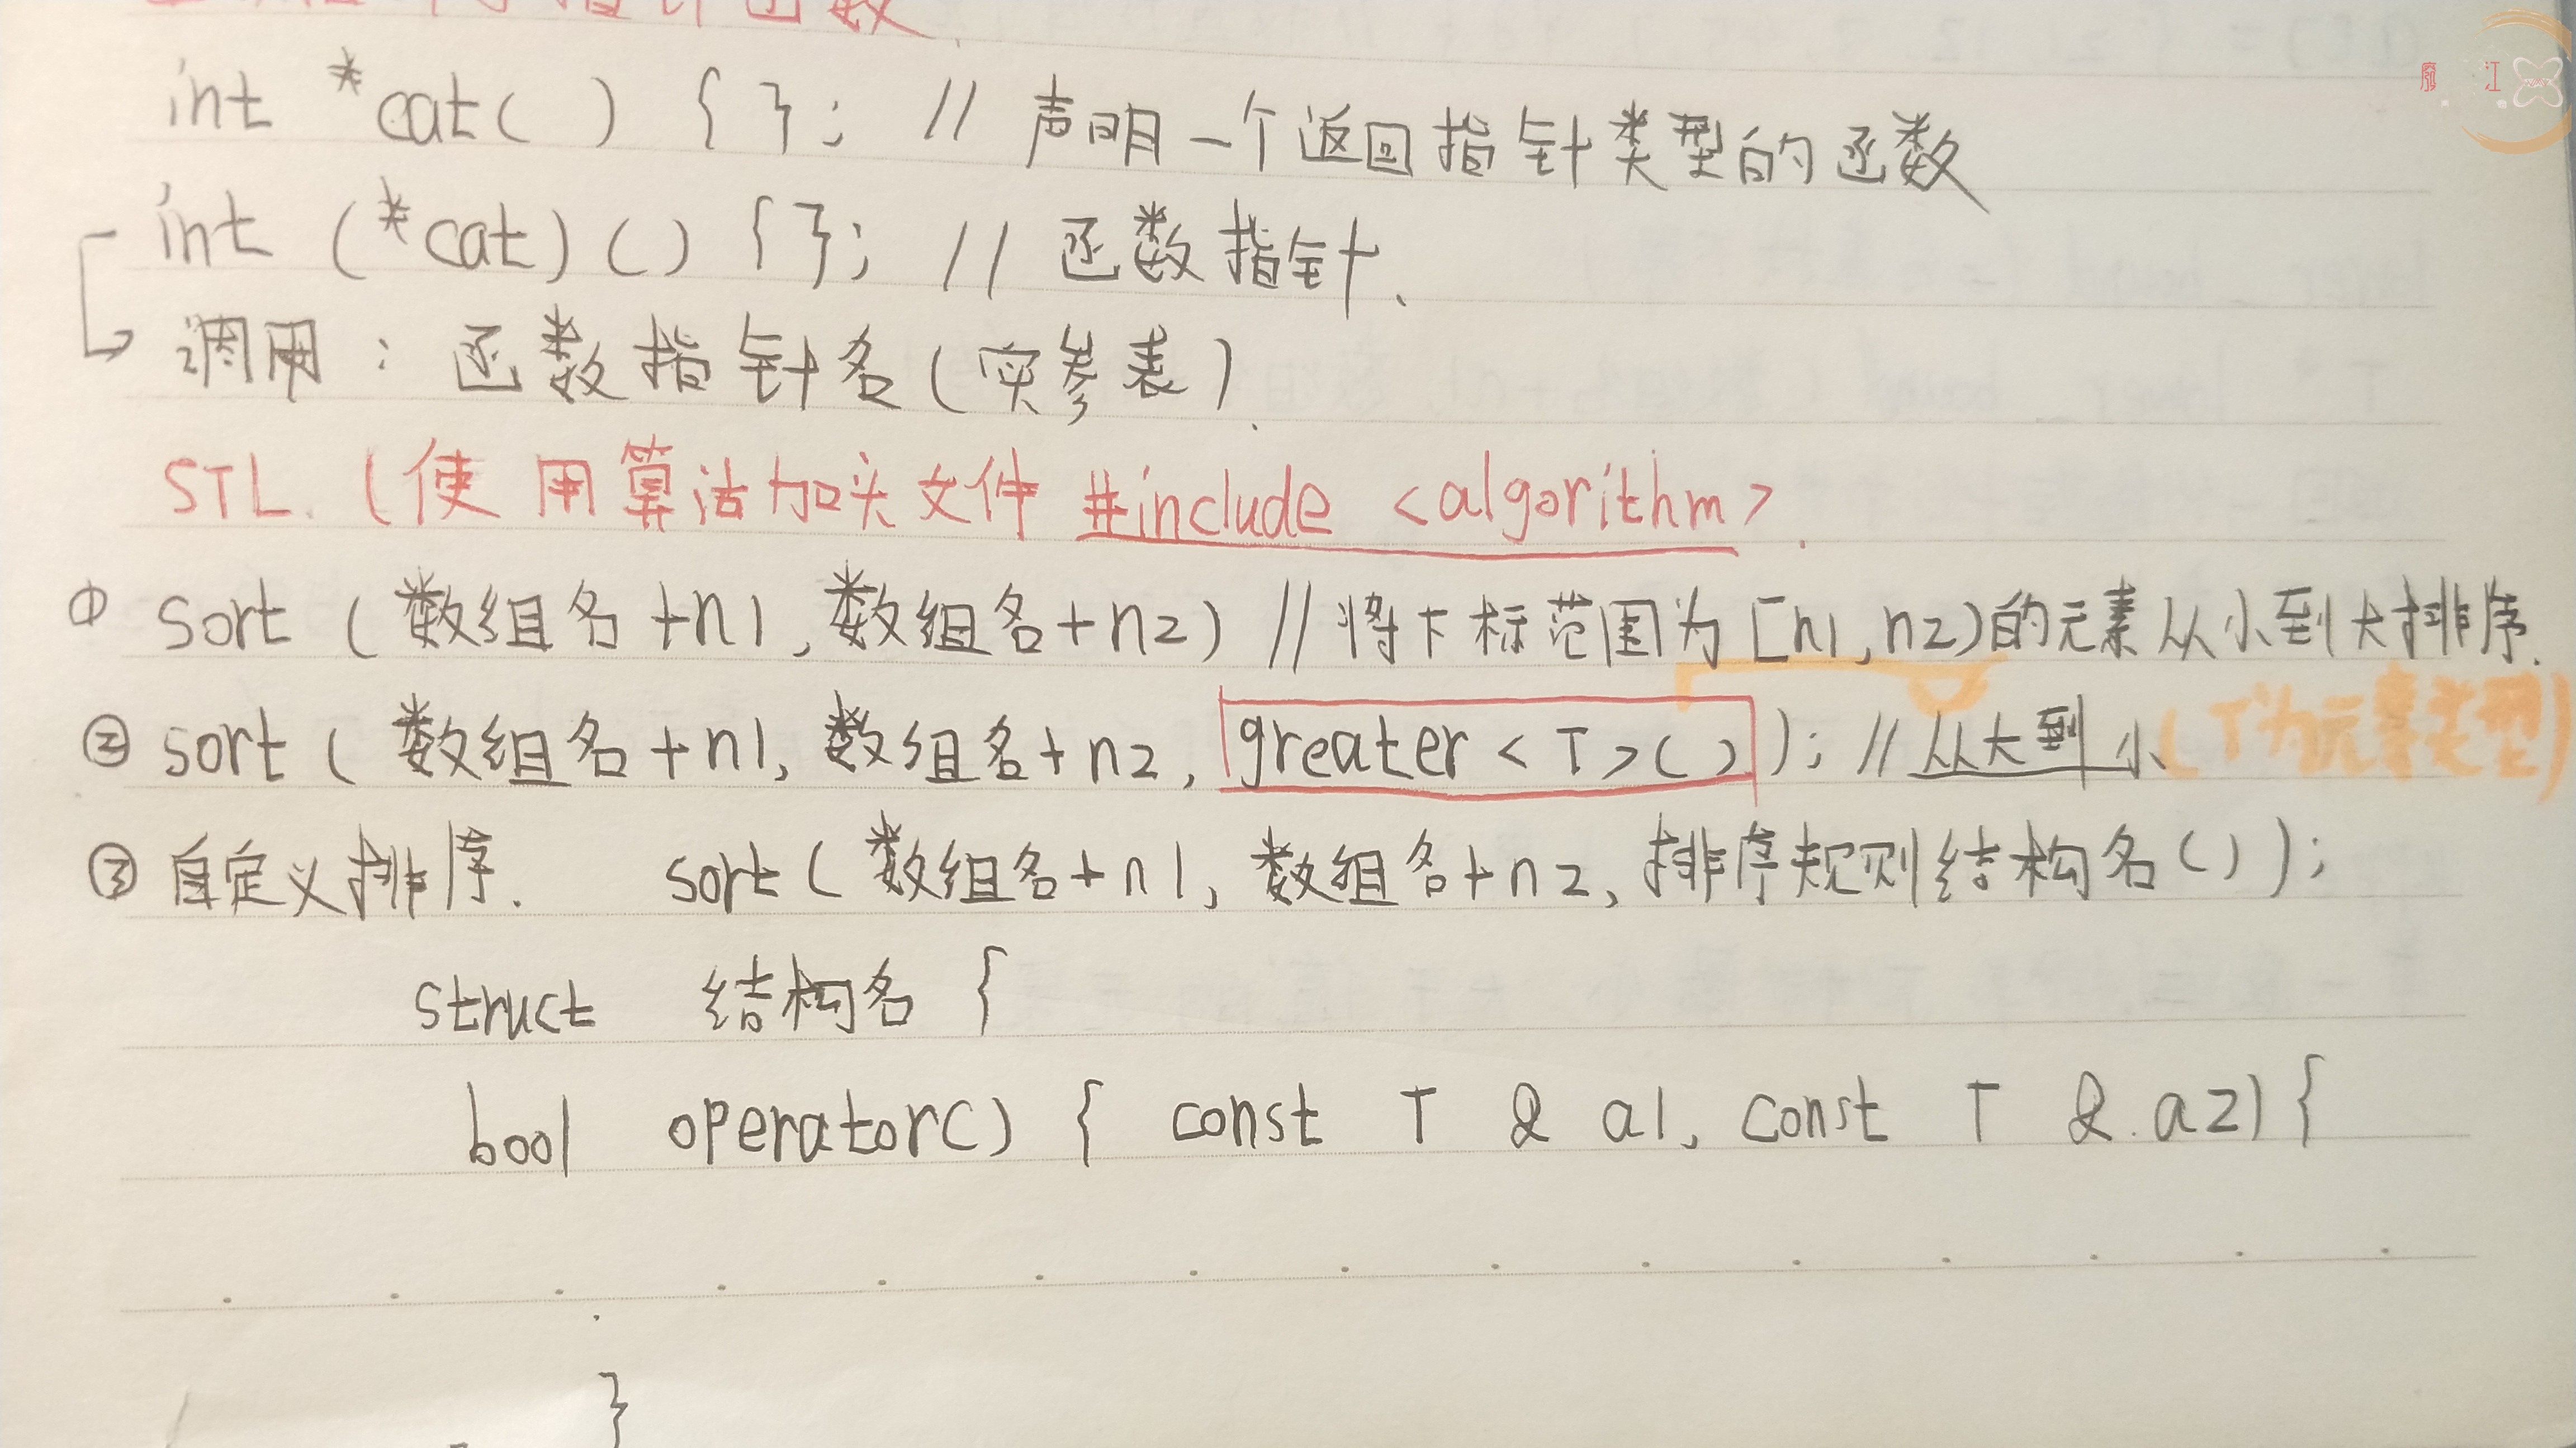 指针函数
int *cat( ) { }; // 声明一个返回指针类型的函数
int (*cat)( ) { }; // 函数指针.
调用: 函数指针名(实参表).
STL. (使用算法加头文件 #include <algorithm>.
① sort (数组名+n1, 数组名+n2) // 将下标范围为[n1,n2)的元素从小到大排序.
② sort (数组名+n1, 数组名+n2, greater <T>( )); // 从大到小 (T为元素类型)
③ 自定义排序. sort (数组名+n1, 数组名+n2, 排序规则结构名());
struct 结构名 {
bool operator() { const T & a1, const T & a2) {
}